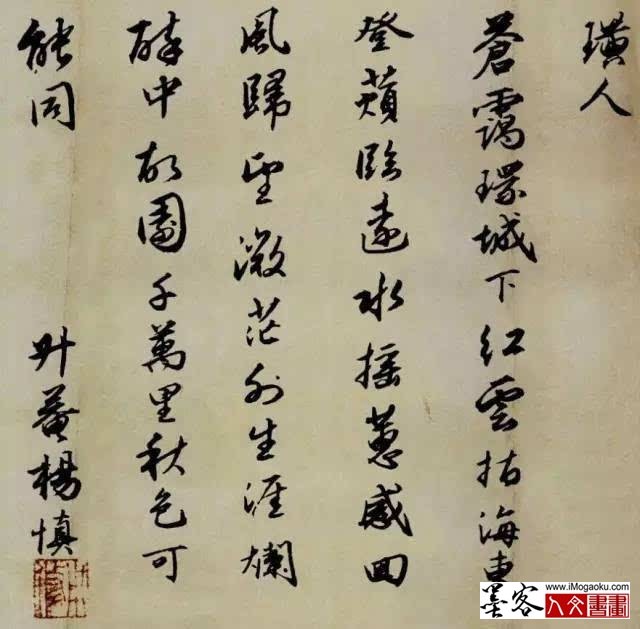 璜人
蒼靄環城下紅雲指海東
登蘋臨遠水摇蕙感回
風歸望微茫外生涯爛
醉中故園千萬里秋色可
能同
升菴楊慎
墨客
www.iMogaoku.com
人文書畫